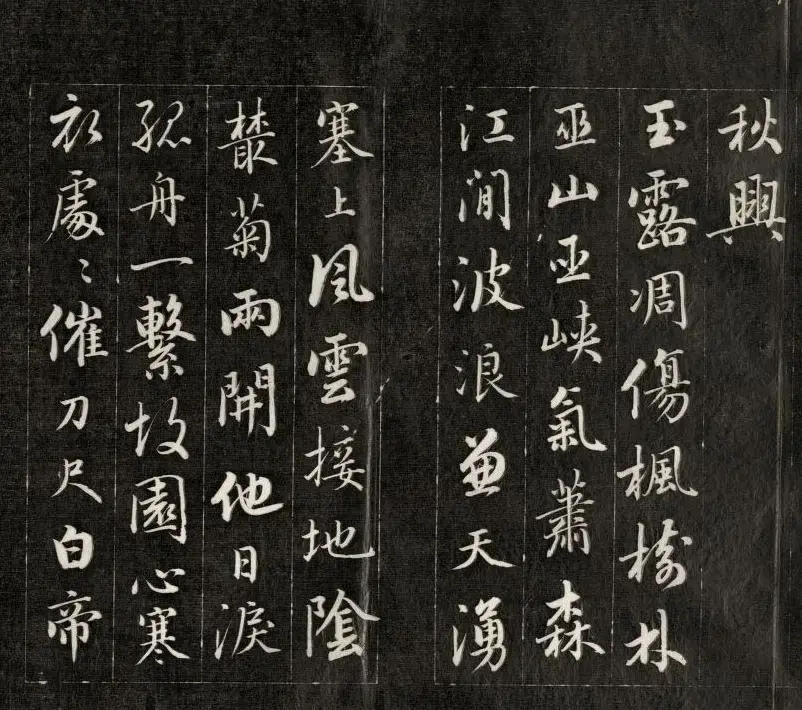 秋興
玉露凋傷楓樹林
巫山巫峽氣蕭森
江間波浪兼天湧
塞上風雲接地陰
叢菊兩開他日淚
孤舟一繫故園心寒
衣處〻催刀尺白帝